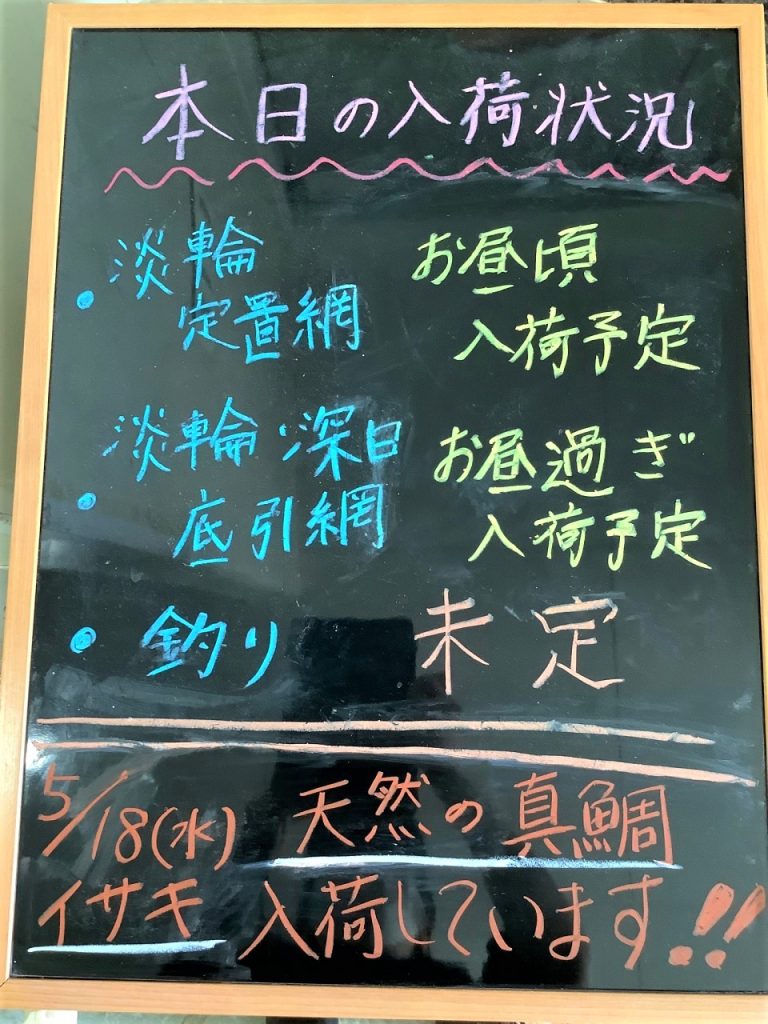 本日の入荷状況
・淡輪 お昼頃
定置網 入荷予定
・淡輪・深日 お昼過ぎ
底引網 入荷予定
・釣り 未定
5/18(水) 天然の真鯛
イサキ 入荷しています!!